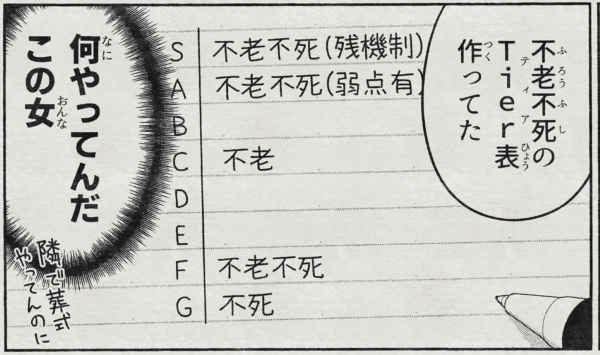 不老不死の
Tier表
作ってた
S 不老不死(残機制)
A 不老不死(弱点有)
B
C 不老
D
E
F 不老不死
G 不死
何やってんだ
この女
隣で葬式
やってんのに